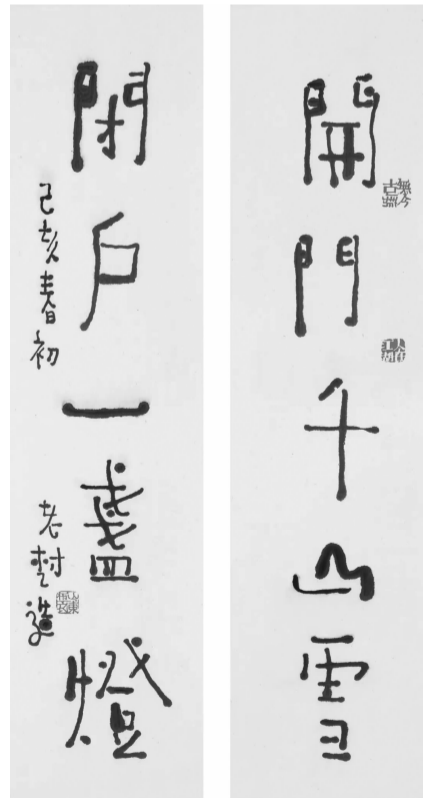 開門千山雪
閉戶一盞燈
己亥春初
老村造